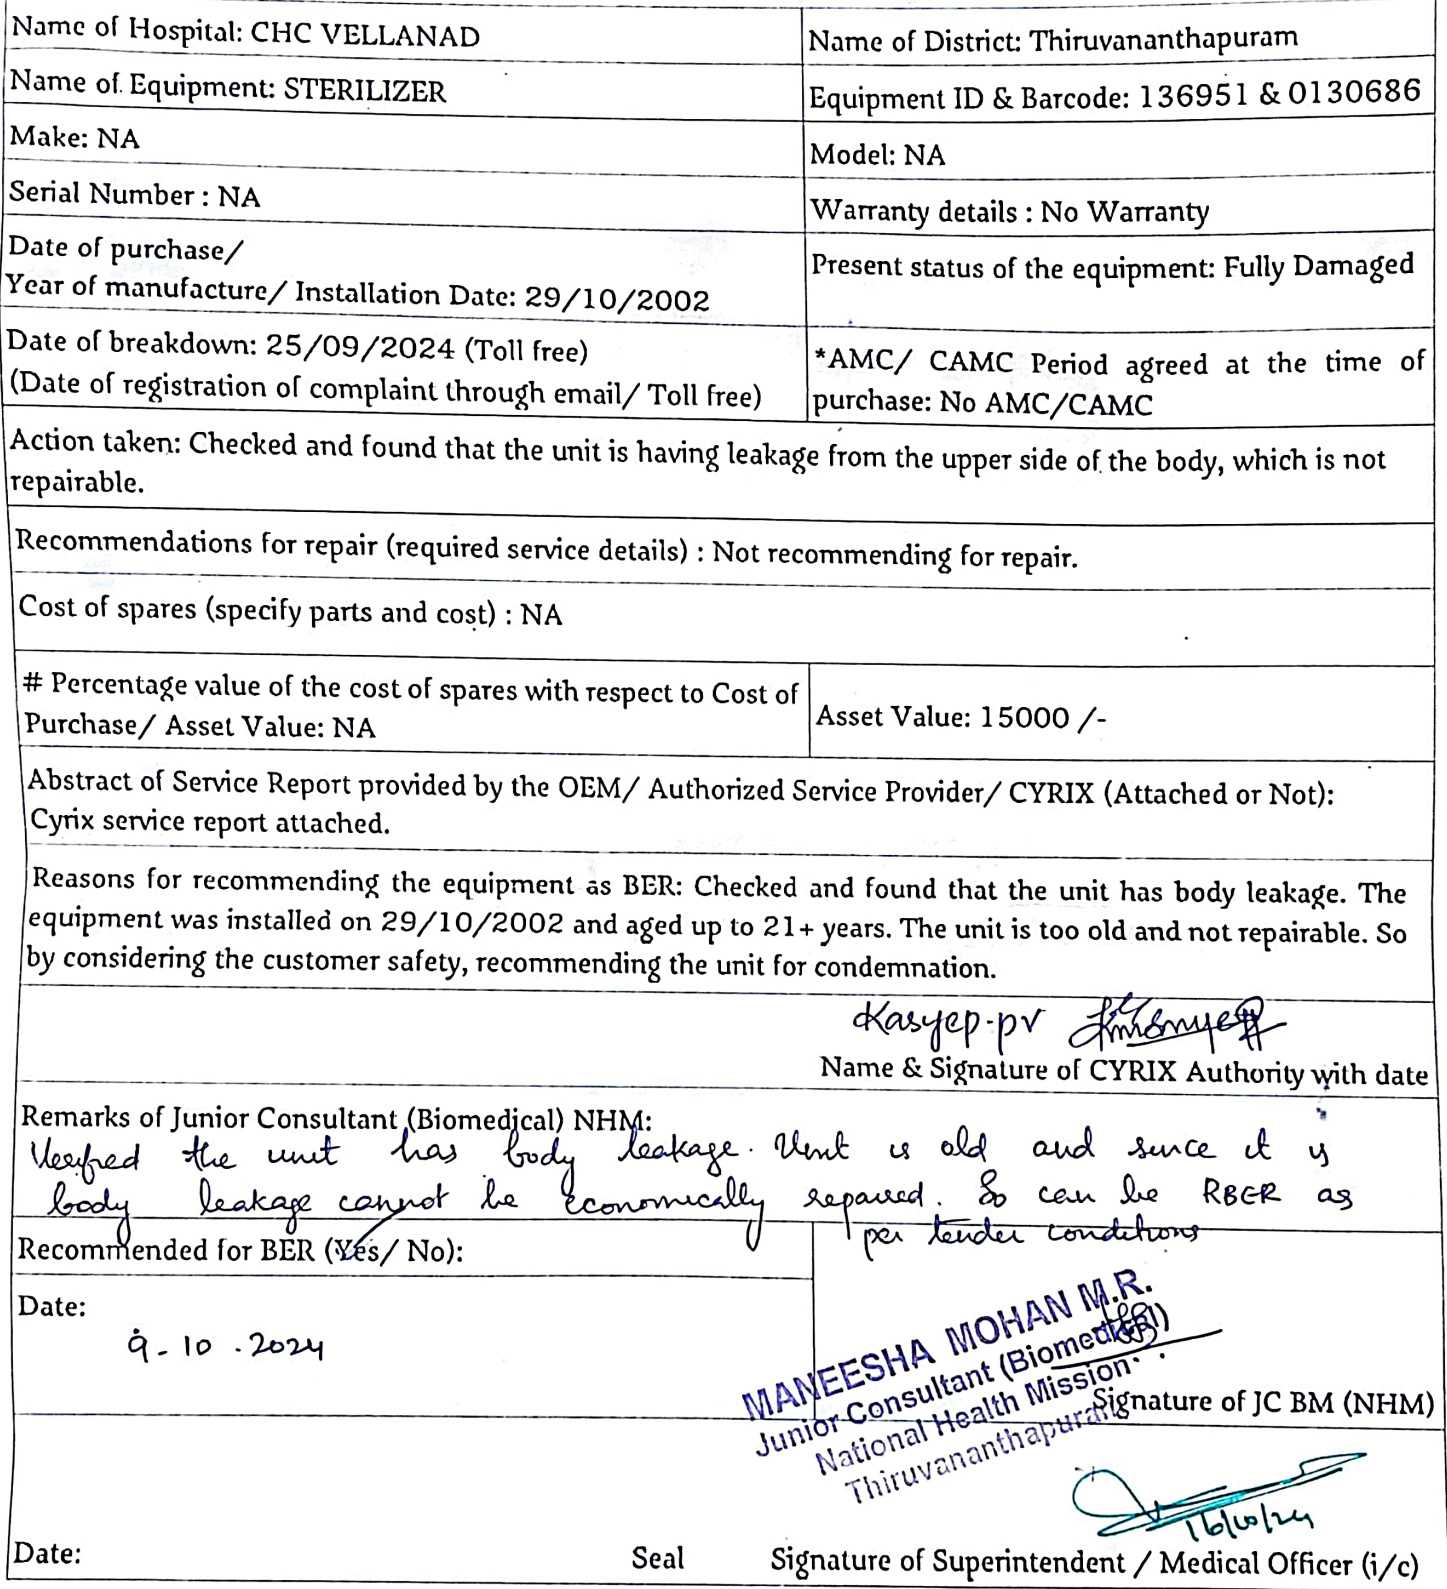 Name of Hospital: CHC VELLANAD
Name of District: Thiruvananthapuram
Name of Equipment: STERILIZER
Equipment ID & Barcode: 136951 & 0130686
Make: NA
Model: NA
Serial Number : NA
Warranty details : No Warranty
Date of purchase/
Year of manufacture/ Installation Date: 29/10/2002
Present status of the equipment: Fully Damaged
Date of breakdown: 25/09/2024 (Toll free)
(Date of registration of complaint through email/ Toll free)
*AMC/ CAMC Period agreed at the time of
purchase: No AMC/CAMC
Action taken: Checked and found that the unit is having leakage from the upper side of the body, which is not
repairable.
Recommendations for repair (required service details) : Not recommending for repair.
Cost of spares (specify parts and cost) : NA
# Percentage value of the cost of spares with respect to Cost of
Purchase/ Asset Value: NA
Asset Value: 15000 /-
Abstract of Service Report provided by the OEM/ Authorized Service Provider/ CYRIX (Attached or Not):
Cyrix service report attached.
Reasons for recommending the equipment as BER: Checked and found that the unit has body leakage. The
equipment was installed on 29/10/2002 and aged up to 21+ years. The unit is too old and not repairable. So
by considering the customer safety, recommending the unit for condemnation.
Kasyep.pv
Name & Signature of CYRIX Authority with date
Remarks of Junior Consultant (Biomedical) NHM:
Verified the unit has body leakage. Unit is old and since it is
body leakage cannot be economically repaired. So can be RBER as
per tender conditions
Recommended for BER (Yes/ No):
Date:
9-10.2024
MANEESHA MOHAN M.R.
Junior Consultant (Biomedical)
National Health Mission
Thiruvananthapuram
Signature of JC BM (NHM)
16/10/24
Date:
Seal
Signature of Superintendent / Medical Officer (i/c)